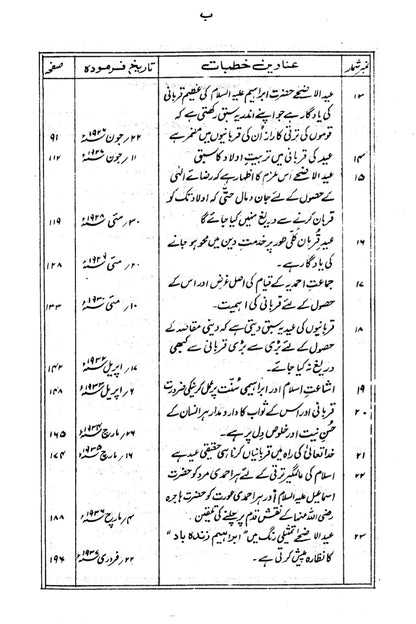 ب
نمبر شمار | عناوین خطبات | تاریخ فرمودہ | صفحہ
۱۳ | عید الاضحیٰ حضرت ابراہیم علیہ السلام کی عظیم قربانی
کی یادگار ہے جو اپنے اندر یہ سبق رکھتی ہے کہ
قوموں کی ترقی کا راز اُن کی قربانیوں میں مضمر ہے | ۲۲ جون ۱۹۲۶ء | ۹۱
۱۴ | عید کی قربانی میں تربیتِ اولاد کا سبق | ۱۱ جون ۱۹۲۷ء | ۱۱۲
۱۵ | عید الاضحیٰ اس عزم کا اظہار ہے کہ رضائے الٰہی
کے حصول کے لئے جان و مال حتّٰی کہ اولاد تک کو
قربان کرنے سے دریغ نہیں کیا جائے گا | ۳۰ مئی ۱۹۲۸ء | ۱۱۹
۱۶ | عید قرُبان کُلّی طور پر خدمتِ دین میں محو ہو جانے
کی یادگار ہے۔ | ۲۰ مئی ۱۹۲۹ء | ۱۲۸
۱۷ | جماعتِ احمدیہ کے قیام کی اصل غرض اور اس کے
حصول کے لئے قربانی کی اہمیت۔ | ۱۰ مئی ۱۹۳۰ء | ۱۳۳
۱۸ | قربانیوں کی عید یہ سبق دیتی ہے کہ دینی مقاصد کے
حصول کے لئے بڑی سے بڑی قربانی سے کبھی
دریغ نہ کیا جائے۔ | ۱۷ اپریل ۱۹۳۲ء | ۱۴۲
۱۹ | اشاعتِ اسلام اور ابراہیمی سُنّت پر عمل کرنیکی ضرورت | ۶ اپریل ۱۹۳۳ء | ۱۴۸
۲۰ | قربانی اور اس کے ثواب کا دارومدار ہر انسان کے
حسنِ نیت اور خلوصِ دل پر ہے۔ | ۲۶ مارچ ۱۹۳۴ء | ۱۶۵
۲۱ | خدا تعالیٰ کی راہ میں قربانیاں کرنا ہی حقیقی عید ہے | ۱۶ مارچ ۱۹۳۵ء | ۱۷۴
۲۲ | اسلام کی عالمگیر ترقی کے لئے ہر احمدی مرد کو حضرت
اسماعیل علیہ السلام اور ہر احمدی عورت کو حضرت ہاجرہ
رضی اللہ عنہا کے نقش قدم پر چلنے کی تلقین | ۴ مارچ ۱۹۳۶ء | ۱۸۸
۲۳ | عید الاضحیٰ تمثیلی رنگ میں "ابراہیم زندہ باد"
کا نظارہ پیش کرتی ہے۔ | ۲۲ فروری ۱۹۳۷ء | ۱۹۶